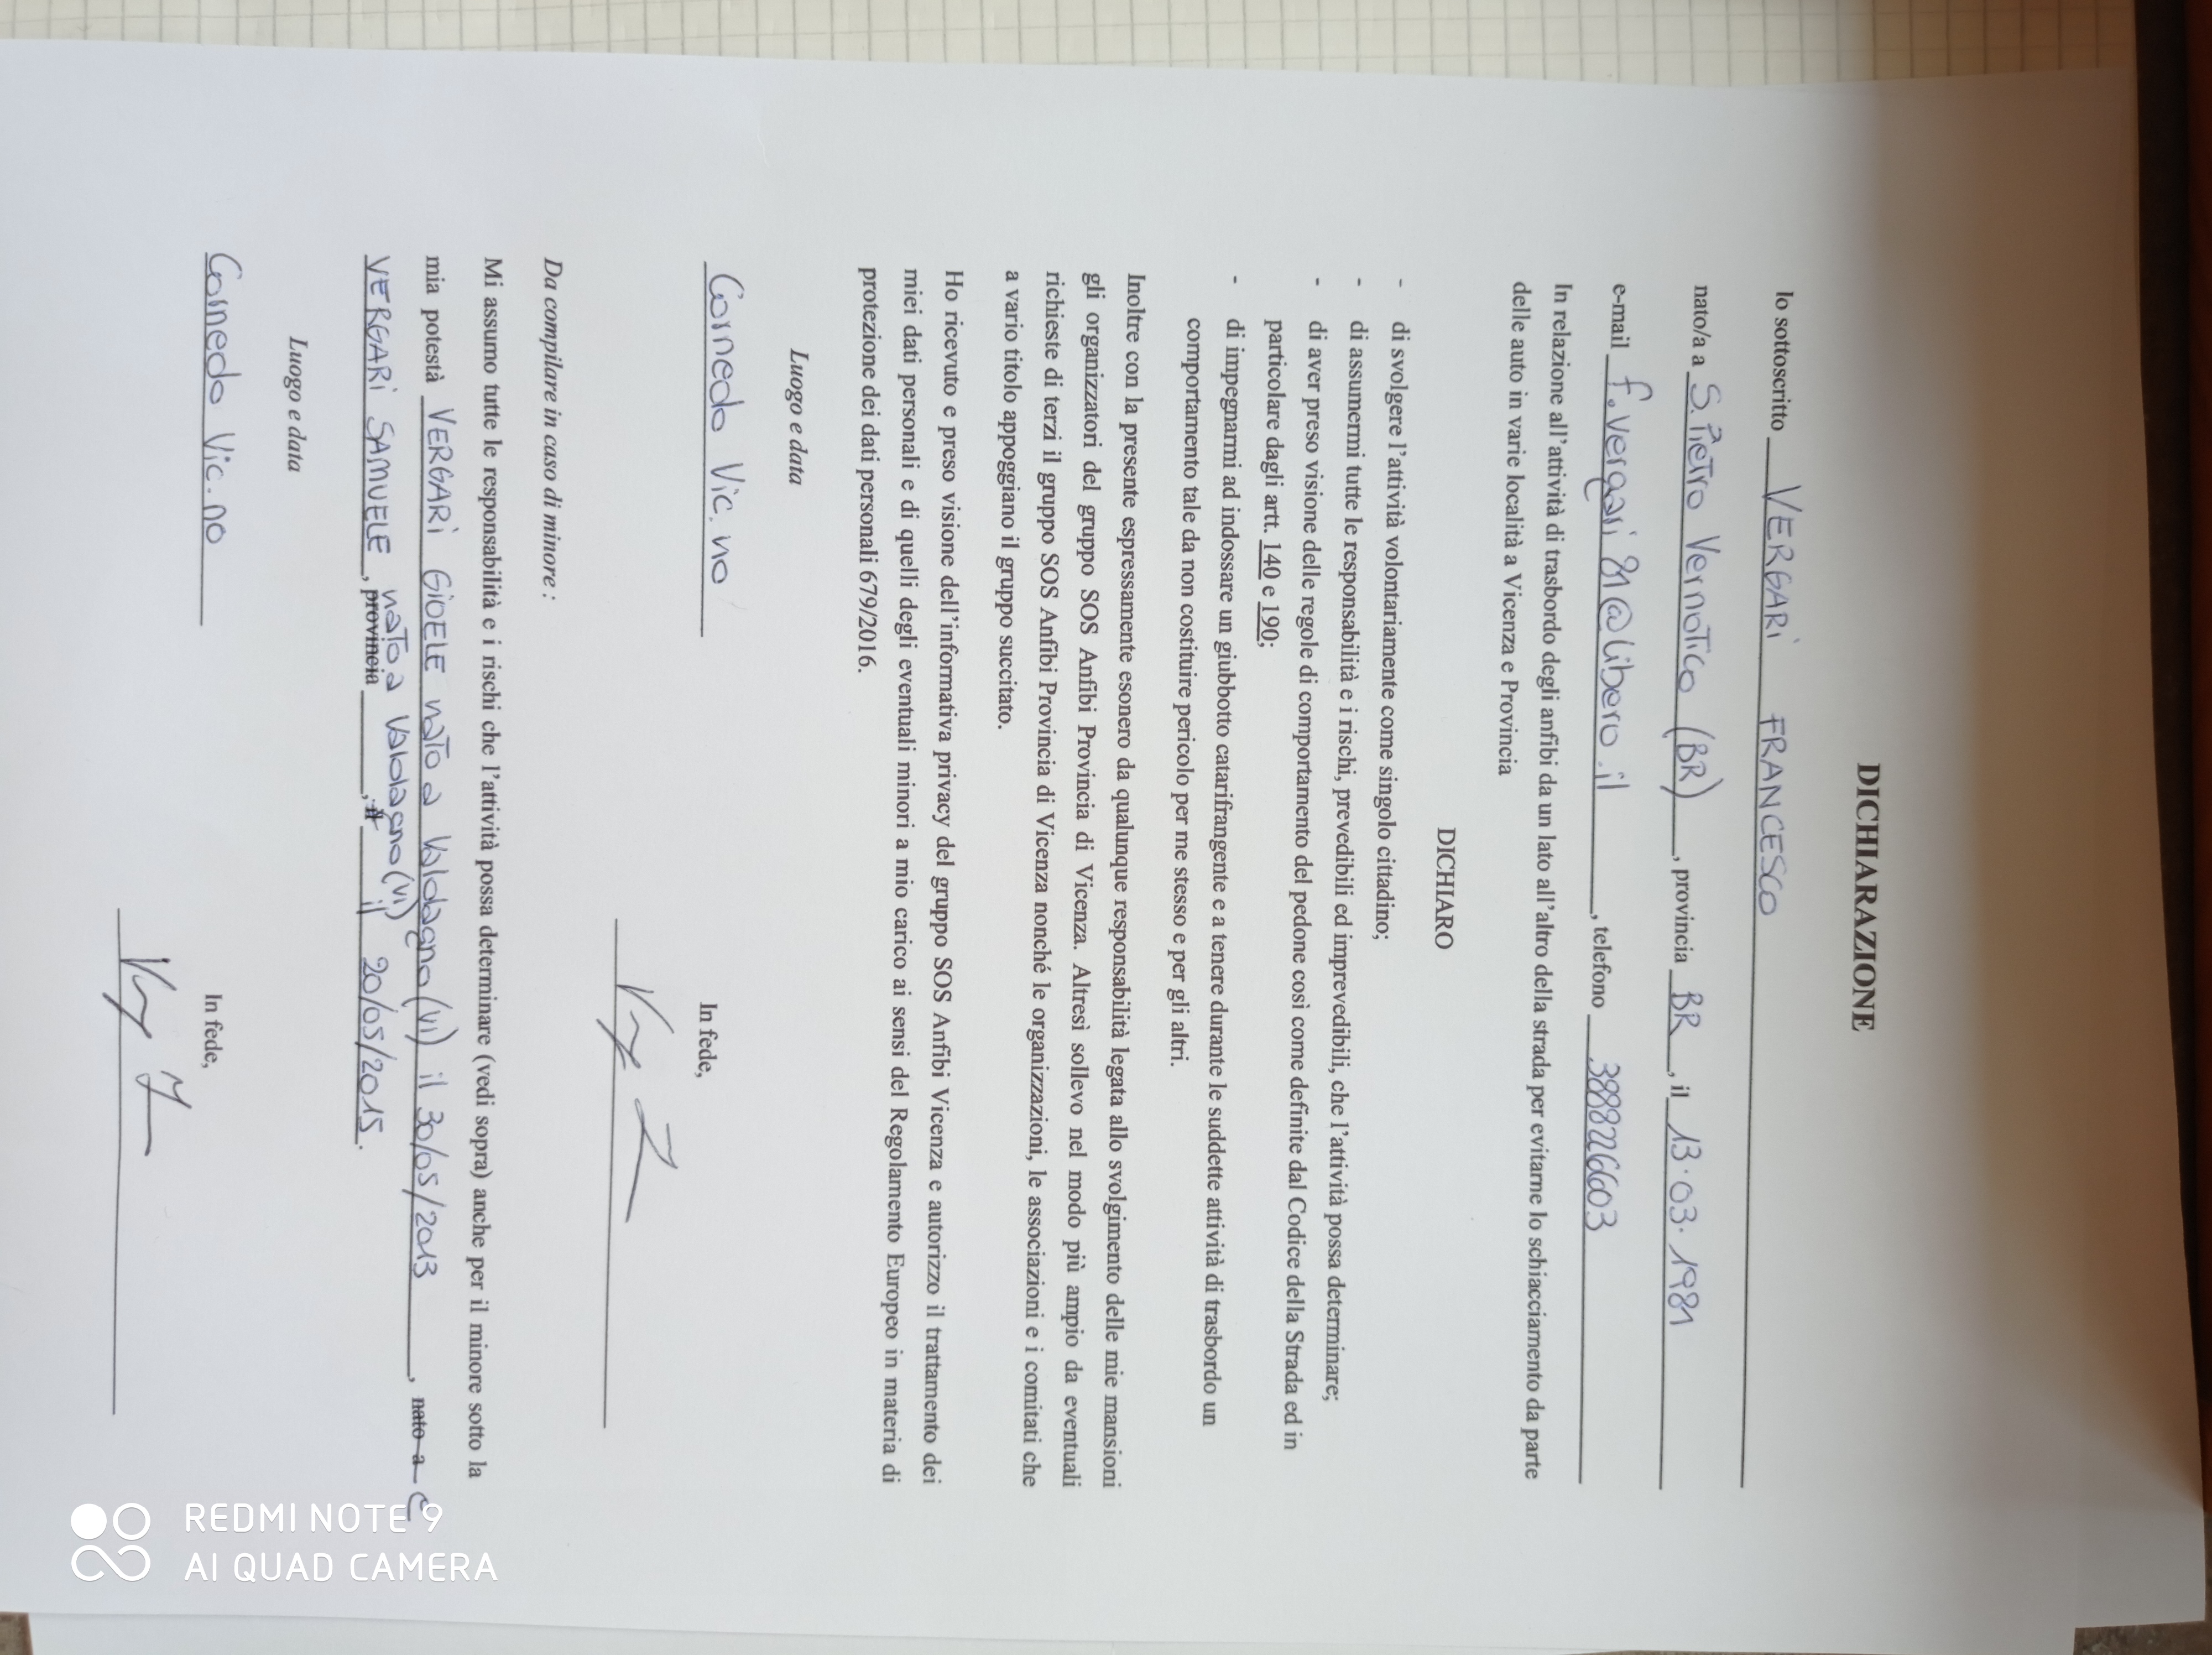 DICHIARAZIONE
Io sottoscritto VERGARI FRANCESCO
nato/a a S. Pietro Vernotico (BR), provincia BR, il 13.03.1981
e-mail f.vergari81@libero.it, telefono 3888226603
In relazione all'attività di trasbordo degli anfibi da un lato all'altro della strada per evitarne lo schiacciamento da parte
delle auto in varie località a Vicenza e Provincia
DICHIARO
- di svolgere l'attività volontariamente come singolo cittadino;
- di assumermi tutte le responsabilità e i rischi, prevedibili ed imprevedibili, che l'attività possa determinare;
- di aver preso visione delle regole di comportamento del pedone così come definite dal Codice della Strada ed in
particolare dagli artt. 140 e 190;
- di impegnarmi ad indossare un giubbotto catarifrangente e a tenere durante le suddette attività di trasbordo un
comportamento tale da non costituire pericolo per me stesso e per gli altri.
Inoltre con la presente espressamente esonero da qualunque responsabilità legata allo svolgimento delle mie mansioni
gli organizzatori del gruppo SOS Anfibi Provincia di Vicenza. Altresì sollevo nel modo più ampio da eventuali
richieste di terzi il gruppo SOS Anfibi Provincia di Vicenza nonché le organizzazioni, le associazioni e i comitati che
a vario titolo appoggiano il gruppo succitato.
Ho ricevuto e preso visione dell'informativa privacy del gruppo SOS Anfibi Vicenza e autorizzo il trattamento dei
miei dati personali e di quelli degli eventuali minori a mio carico ai sensi del Regolamento Europeo in materia di
protezione dei dati personali 679/2016.
Luogo e data
Cornedo Vic.no
In fede,
Da compilare in caso di minore :
Mi assumo tutte le responsabilità e i rischi che l'attività possa determinare (vedi sopra) anche per il minore sotto la
mia potestà VERGARI GIOELE nato a Valdagno (VI) il 30/05/2013, nato a e
VERGARI SAMUELE, provincia nato a Valdagno (VI), il il 20/05/2015.
Luogo e data
Cornedo Vic.no
In fede,
REDMI NOTE 9
AI QUAD CAMERA